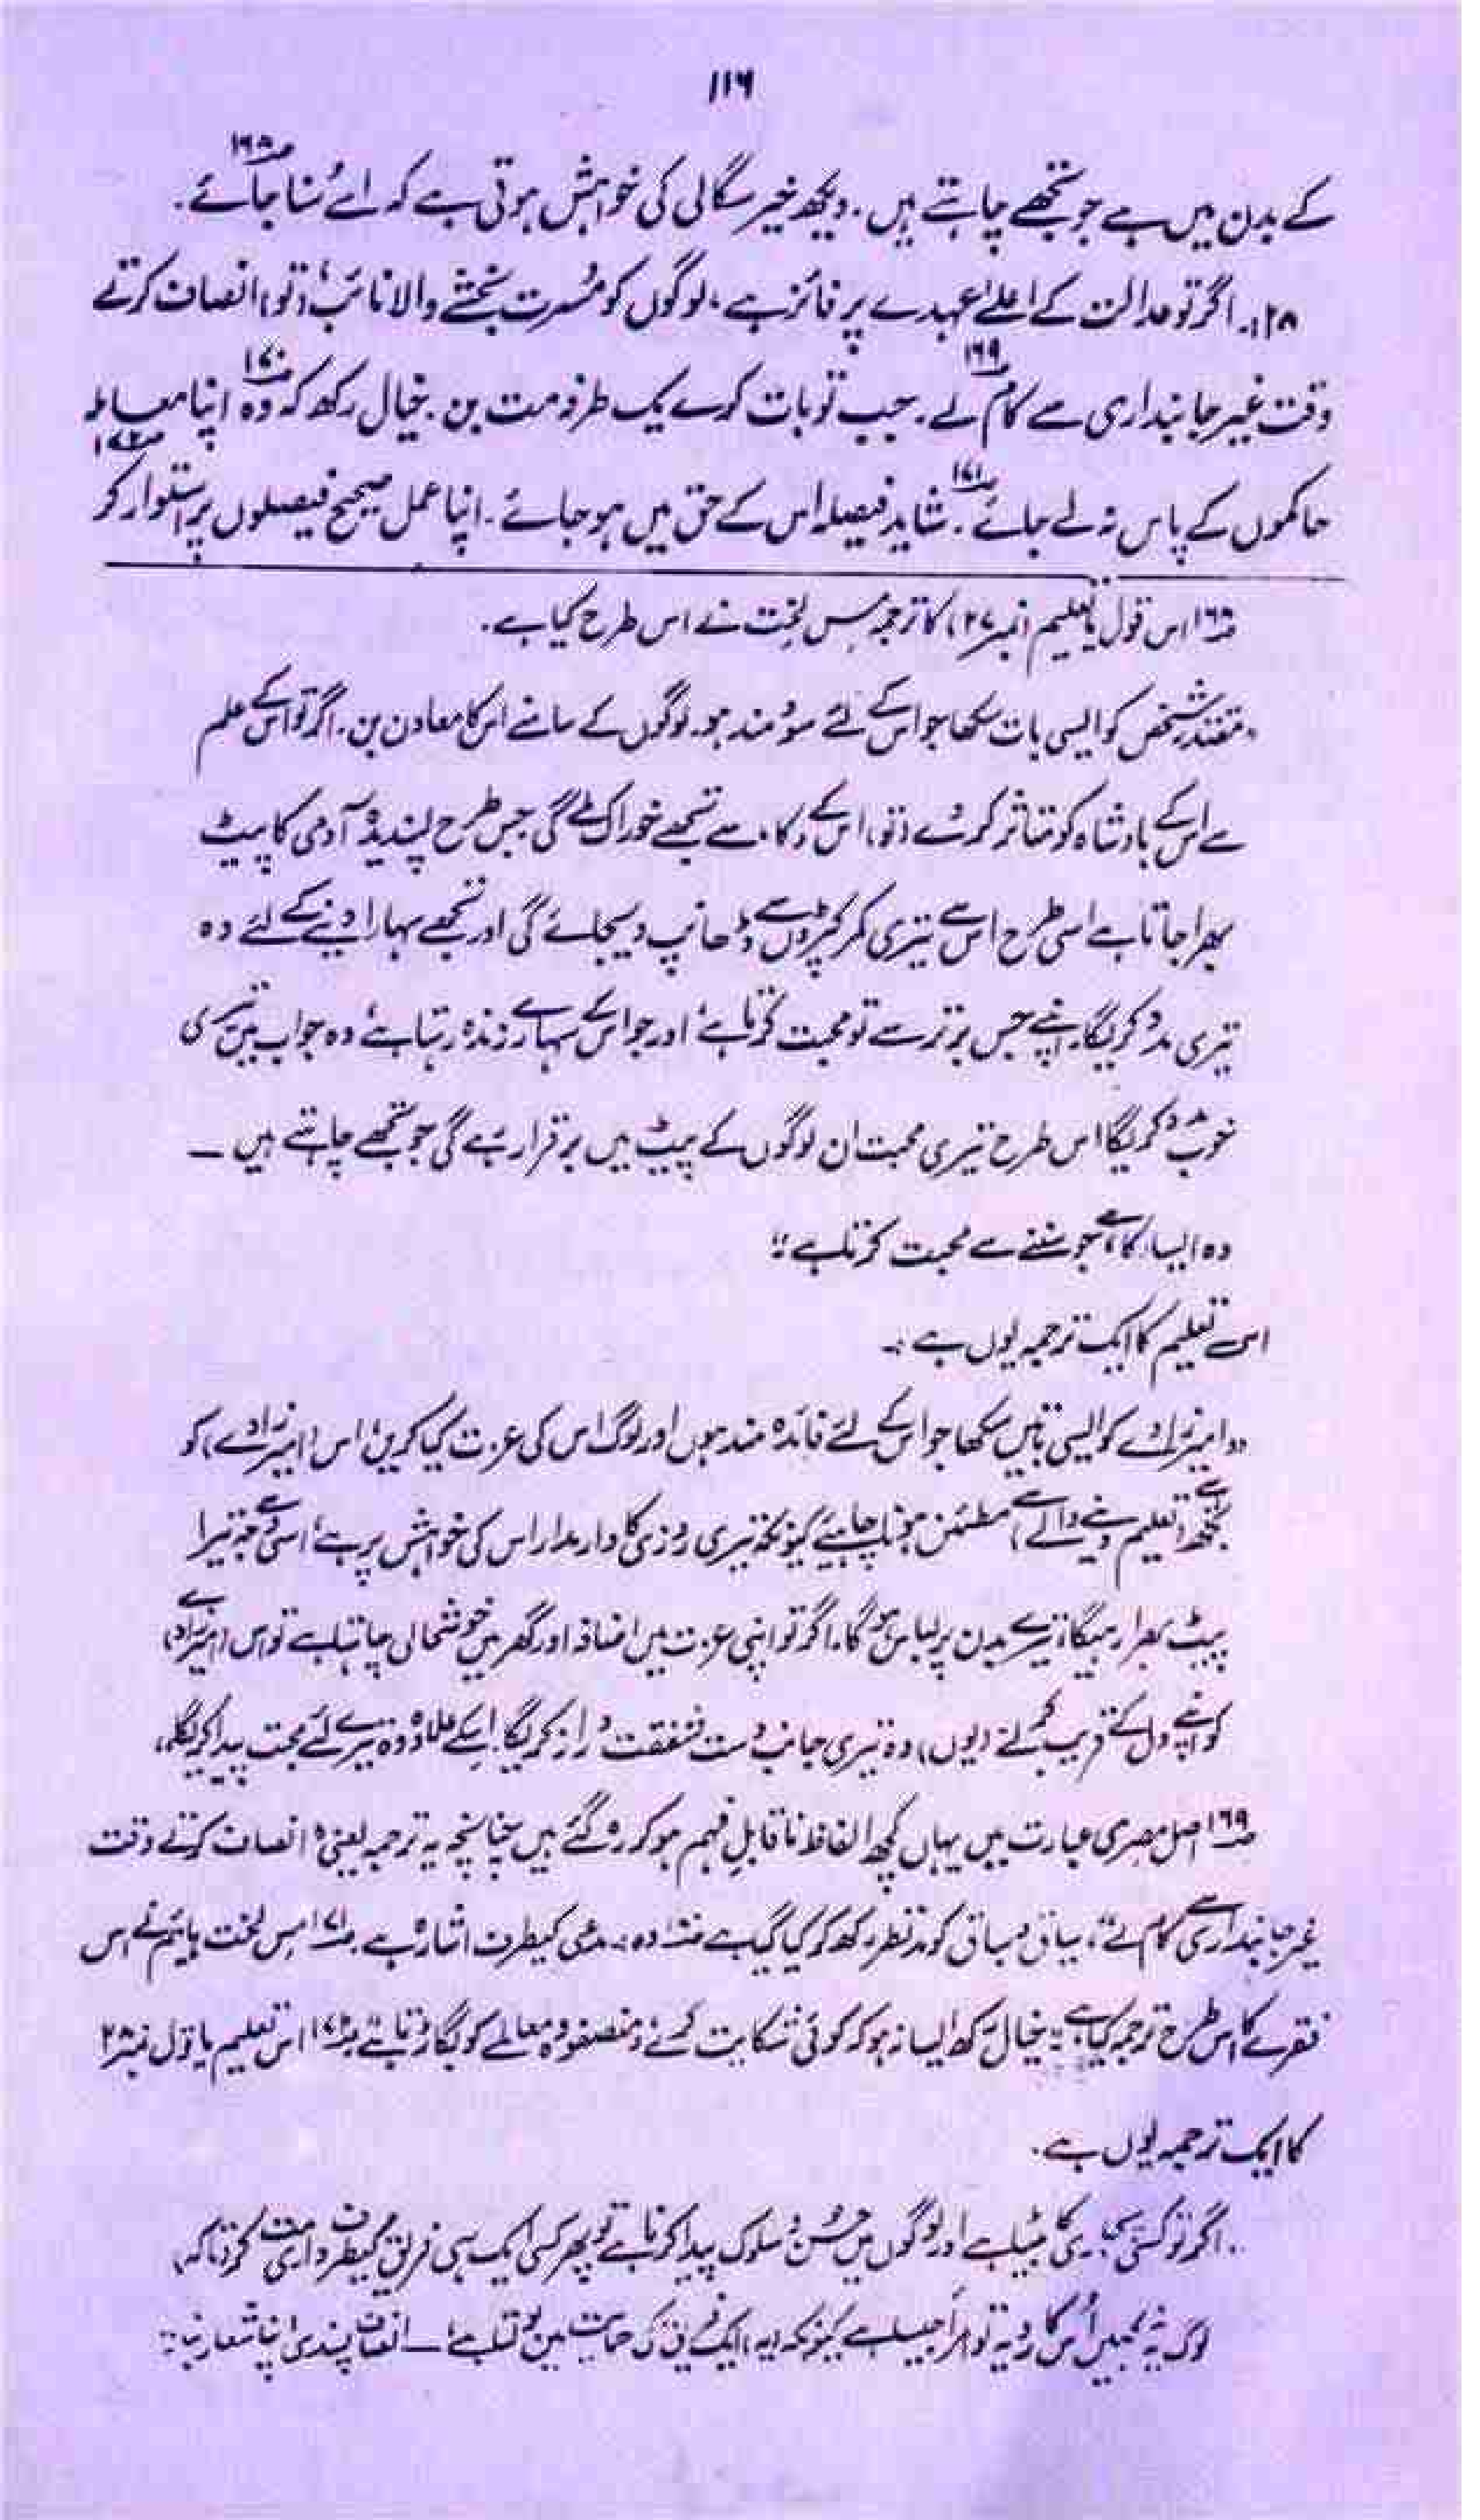 ۱۱۶
کے بدن میں ہے جو تجھے چاہتے ہیں۔ دیکھ خیر سگالی کی خواہش ہوتی ہے کہ اسے سُنا جائے۔ ۱۶۸
۱۲۸۔ اگر تو عدالت کے اعلےٰ عہدے پر فائز ہے، لوگوں کو مُسرت بخشنے والا نائب، (تو) انصاف کرتے
وقت غیر جانبداری سے کام لے۔ ۱۶۹ جب تو بات کرے یک طرفہ مت بن۔ خیال رکھ کہ وہ ۱۷۰ اپنا معاملہ
حاکموں کے پاس نہ لے جائے ۱۷۱۔ شاید فیصلہ اس کے حق میں ہو جائے۔ اپنا عمل صحیح فیصلوں پر استوار کر ۱۷۲
۱۶۸ اس قول یا تعلیم (نمبر ۲۷) کا ترجمہ مس لخت نے اس طرح کیا ہے۔
مقتدر شخص کو ایسی بات سکھا جو اس کے لئے سودمند ہو۔ لوگوں کے سامنے اس کا معاون بن۔ اگر تو اس کے علم
سے اس کے بادشاہ کو متاثر کر دے (تو) اس کے (کا) سے تجھے خوراک ملے گی جس طرح پسندیدہ آدمی کا پیٹ
بھرا جاتا ہے اسی طرح اس سے تیری کمر کپڑوں سے ڈھانپ دیجائے گی اور تجھے سہارا دینے کے لئے وہ
تیری مدد کریگا۔ اپنے جس برتر سے تو محبت کرتا ہے، اور جو اس کے سہارے زندہ رہتا ہے، وہ جواب میں تیری
خوب مدد کریگا اس طرح تیری محبت ان لوگوں کے پیٹ میں برقرار رہے گی جو تجھے چاہتے ہیں —
وہ ایسا (کا) ہے جو سننے سے محبت کرتا ہے"
اس تعلیم کا ایک ترجمہ یوں ہے :۔
"امیرزادے کو ایسی باتیں سکھا جو اس کے لئے فائدہ مند ہوں اور لوگ اس کی عزت کیا کریں، اس (امیرزادے) کو
تجھ (تعلیم دینے والے) سے مطمئن ہونا چاہیے کیونکہ تیری روزی کا دارومدار اس کی خواہش پر ہے، اسی وجہ سے تیرا
پیٹ بھرا رہیگا، تیرے بدن پر لباس ہو گا، اگر تو اپنی عزت میں اضافہ اور گھر میں خوشحالی چاہتا ہے تو اس (امیرزادے)
کو اپنے دل کے قریب کر لے (یوں) وہ تیری جانب دست شفقت دراز کریگا۔ اسکے علاوہ وہ تیرے لئے محبت پیدا کریگا"
۱۶۹ اصل مصری عبارت میں یہاں کچھ الفاظ ناقابلِ فہم ہو کر رہ گئے ہیں چنانچہ یہ ترجمہ یعنی "انصاف کرتے وقت
غیر جانبداری سے کام لے"، سیاق و سباق کو مدنظر رکھ کر کیا گیا ہے ۱۷۰ وہ :۔ مدعی کیطرف اشارہ ہے۔ ۱۷۱ مس لخت ہائیم نے اس
فقرے کا اس طرح ترجمہ کیا ہے "خیال رکھ ایسا نہ ہو کہ کوئی شکایت کرے: منصفو وہ معاملے کو بگاڑتا ہے" ۱۷۲ اس تعلیم یا قول نمبر ۲۸
کا ایک ترجمہ یوں ہے۔
"اگر تو کسی کا بیٹا ہے اور لوگوں میں حُسن سلوک پیدا کرتا ہے تو پھر کسی ایک ہی فریق کیطرفداری مت کر تاکہ
لوگ یہ نہ کہیں اس کا رویہ تو جیسا ہے کیونکہ (یہ) ایک فریق کی حمایت میں بولتا ہے، — انصاف پسندی اپنا شعار بنا